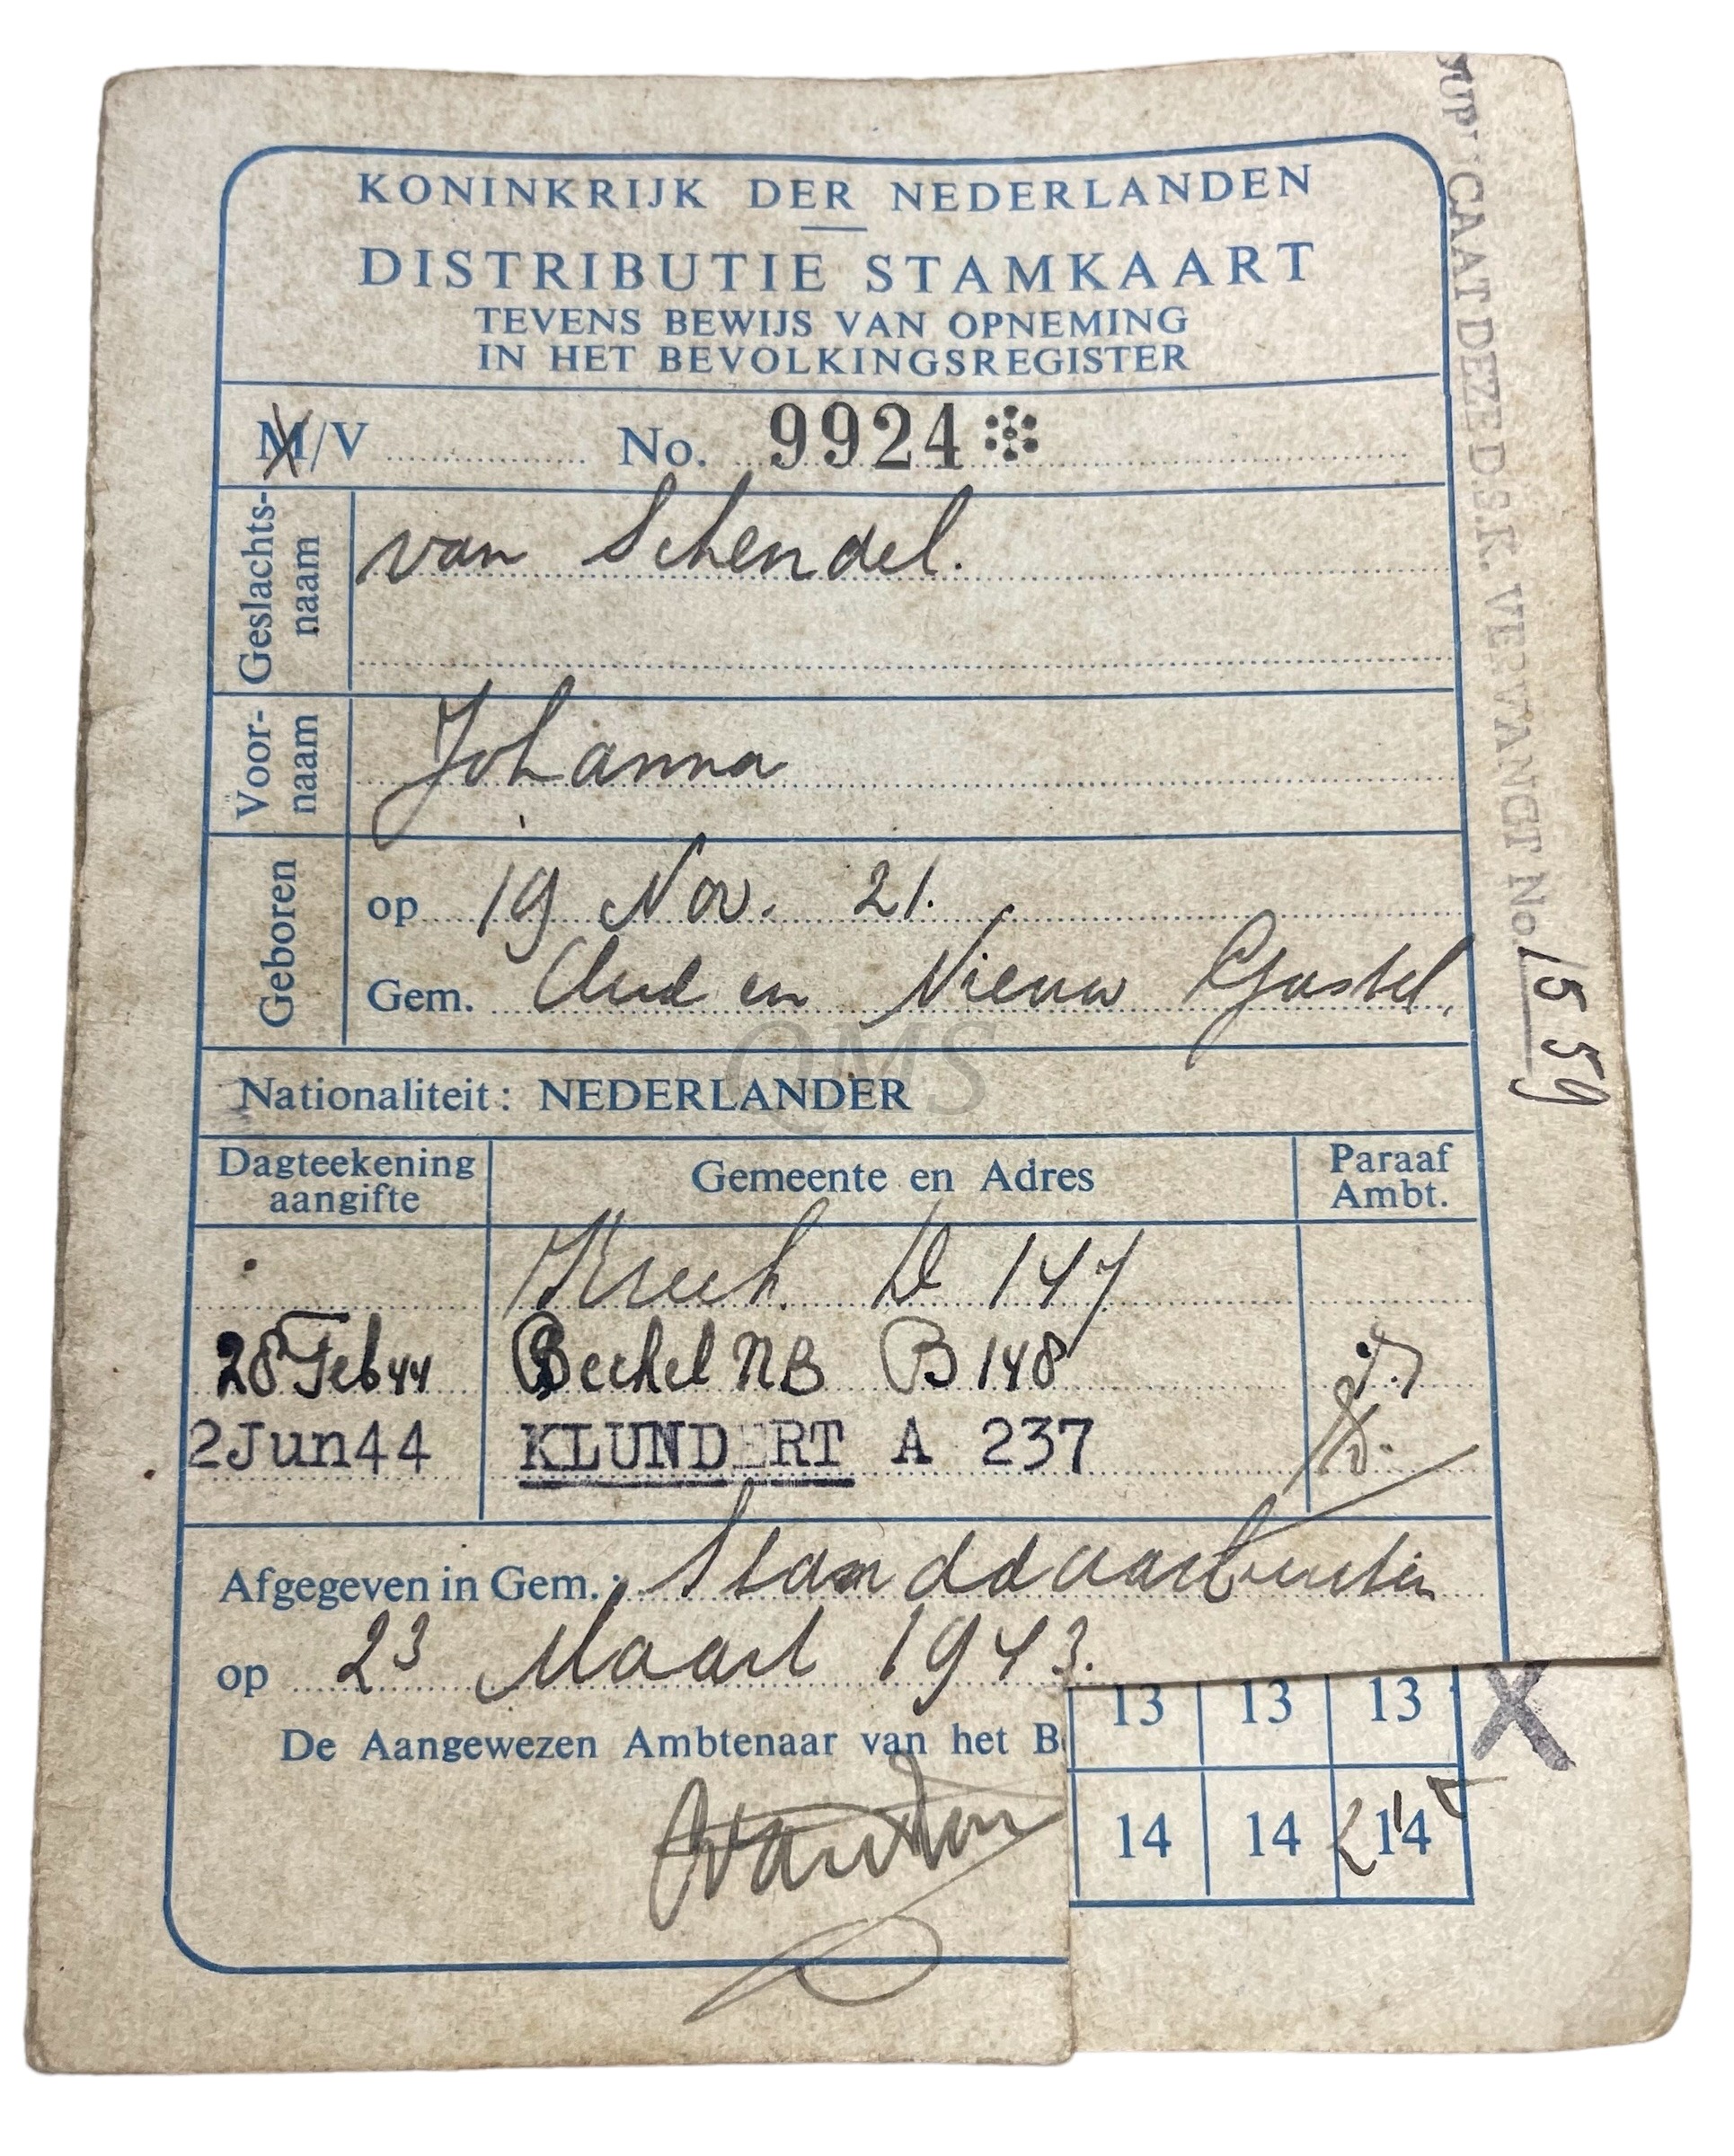 KONINKRIJK DER NEDERLANDEN
DISTRIBUTIE STAMKAART
TEVENS BEWIJS VAN OPNEMING
IN HET BEVOLKINGSREGISTER
M/V No. 9924
Geslachts-
naam
van Schendel.
Voor-
naam
Johanna
Geboren
op 19 Nov. 21.
Gem. Oud en Nieuw Gastel,
Nationaliteit: NEDERLANDER
QMS
Dagteekening
aangifte
Gemeente en Adres
Paraaf
Ambt.
D 147
28 Feb 44 Beekel NB B 148
2Jun44 KLUNDERT A 237
Afgegeven in Gem.: Standdaarbuiten
op 23 Maart 1943.
De Aangewezen Ambtenaar van het B
13 13 13
X
14 14 14
DUPLICAAT DEZE D.S.K. VERVANGT No. 1559